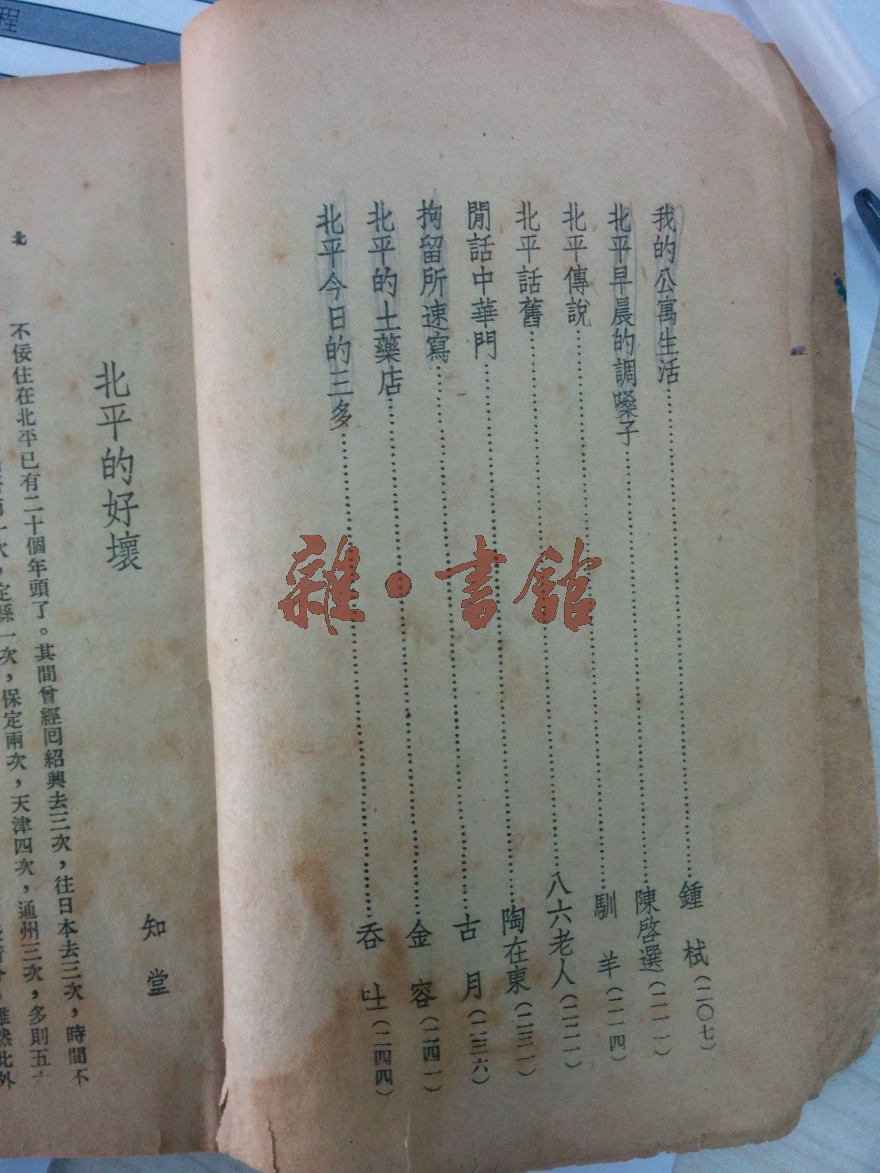 我的公寓生活……鍾 栻(二〇七)
北平早晨的調嗓子……陳啓選(二一一)
北平傳說……馴 羊(二一四)
北平話舊……八六老人(二二一)
閒話中華門……陶在東(二三一)
拘留所速寫……古 月(二三六)
北平的土藥店……金 容(二四一)
北平今日的三多……吞 吐(二四四)
雜·書館
知 堂
北平的好壞
不佞住在北平已有二十個年頭了。其間曾經回紹興去三次，往日本去三次，時間不
一次，定縣一次，保定兩次，天津四次，通州三次，多則五
北
程